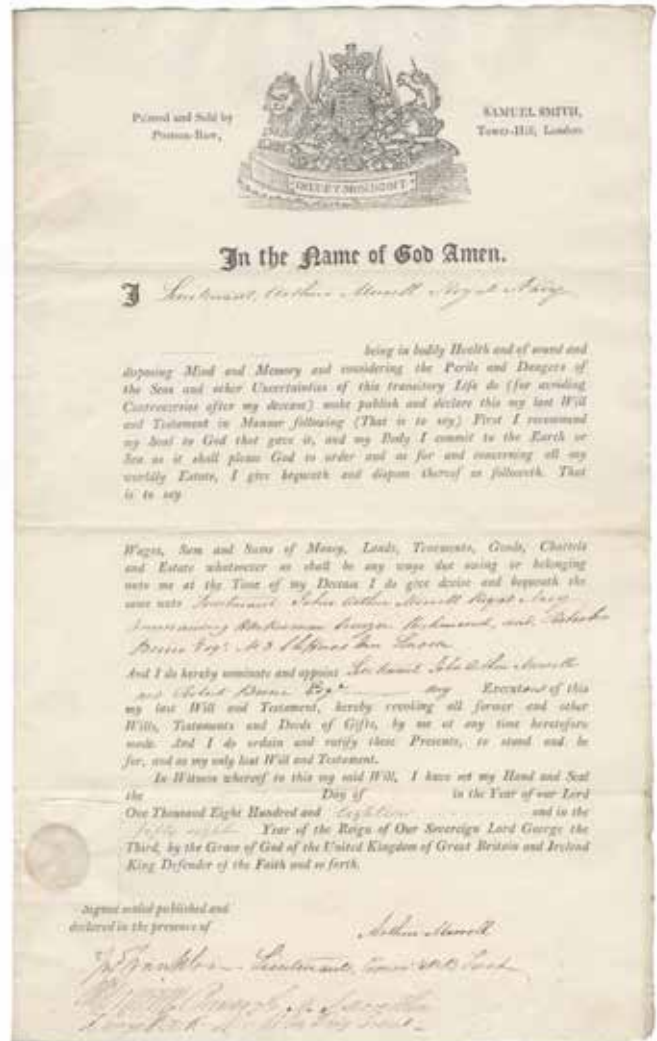 Printed and Sold by
Postern-Row,
SAMUEL SMITH,
Tower-Hill, London
DIEU ET MON DROIT
In the Name of God Amen.
I Lieutenant Arthur Morrell Royal Navy
being in bodily Health and of sound and
disposing Mind and Memory and considering the Perils and Dangers of
the Seas and other Uncertainties of this transitory Life do (for avoiding
Controversies after my decease) make publish and declare this my last Will
and Testament in Manner following (That is to say) First I recommend
my Soul to God that gave it, and my Body I commit to the Earth or
Sea as it shall please God to order and as for and concerning all my
worldly Estate, I give bequeath and dispose thereof as followeth. That
is to say
Wages, Sum and Sums of Money, Lands, Tenements, Goods, Chattels
and Estate whatsoever as shall be any ways due owing or belonging
unto me at the Time of my Decease I do give devise and bequeath the
same unto Lieutenant John Arthur Morrell Royal Navy
Commanding and
Esqr. Inn London
And I do hereby nominate and appoint Lieutenant John Arthur Morrell
and Esqr. my Executors of this
my last Will and Testament, hereby revoking all former and other
Wills, Testaments and Deeds of Gifts, by me at any time heretofore
made. And I do ordain and ratify these Presents, to stand and be
for, and as my only last Will and Testament.
In Witness whereof to this my said Will, I have set my Hand and Seal
the Day of in the Year of our Lord
One Thousand Eight Hundred and eighteen and in the
fifty eight Year of the Reign of Our Sovereign Lord George the
Third, by the Grace of God of the United Kingdom of Great Britain and Ireland
King Defender of the Faith and so forth.
Signed sealed published and
declared in the presence of
Arthur Morrell
Jn Franklin Lieutenant